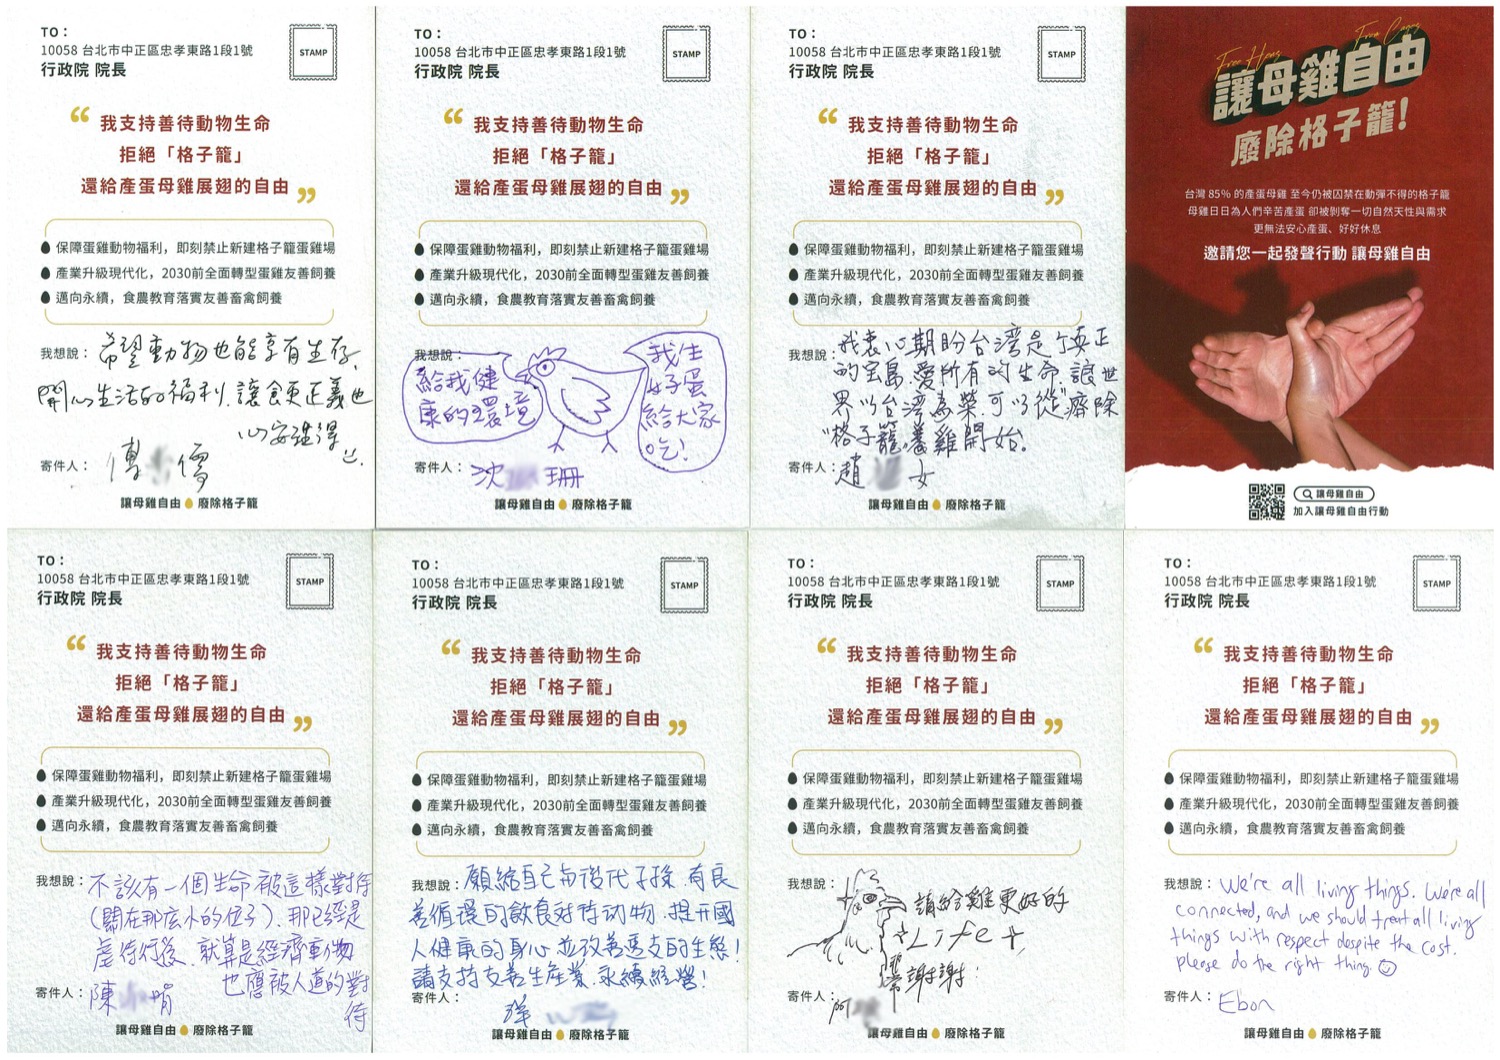 TO：
10058 台北市中正區忠孝東路1段1號
行政院 院長
STAMP
“ 我支持善待動物生命
拒絕「格子籠」
還給產蛋母雞展翅的自由 ”
保障蛋雞動物福利，即刻禁止新建格子籠蛋雞場
產業升級現代化，2030前全面轉型蛋雞友善飼養
邁向永續，食農教育落實友善畜禽飼養
我想說：希望動物也能享有生存、
開心生活的福利，讓食更正義也
心安理得
寄件人：傅 儒
讓母雞自由 廢除格子籠
TO：
10058 台北市中正區忠孝東路1段1號
行政院 院長
STAMP
“ 我支持善待動物生命
拒絕「格子籠」
還給產蛋母雞展翅的自由 ”
保障蛋雞動物福利，即刻禁止新建格子籠蛋雞場
產業升級現代化，2030前全面轉型蛋雞友善飼養
邁向永續，食農教育落實友善畜禽飼養
我想說：
給我健
康的環境
我生
好蛋
給大家
吃！
寄件人：沈 珊
讓母雞自由 廢除格子籠
TO：
10058 台北市中正區忠孝東路1段1號
行政院 院長
STAMP
“ 我支持善待動物生命
拒絕「格子籠」
還給產蛋母雞展翅的自由 ”
保障蛋雞動物福利，即刻禁止新建格子籠蛋雞場
產業升級現代化，2030前全面轉型蛋雞友善飼養
邁向永續，食農教育落實友善畜禽飼養
我想說：我衷心期盼台湾是个真正
的宝島，愛所有的生命，讓世
界以台湾為榮，可以從"廢除
"格子籠"養雞開始。
寄件人：趙 女
讓母雞自由 廢除格子籠
Free Hens Free Cages
讓母雞自由
廢除格子籠！
台灣 85% 的產蛋母雞 至今仍被囚禁在動彈不得的格子籠
母雞日日為人們辛苦產蛋 卻被剝奪一切自然天性與需求
更無法安心產蛋、好好休息
邀請您一起發聲行動 讓母雞自由
讓母雞自由
加入讓母雞自由行動
TO：
10058 台北市中正區忠孝東路1段1號
行政院 院長
STAMP
“ 我支持善待動物生命
拒絕「格子籠」
還給產蛋母雞展翅的自由 ”
保障蛋雞動物福利，即刻禁止新建格子籠蛋雞場
產業升級現代化，2030前全面轉型蛋雞友善飼養
邁向永續，食農教育落實友善畜禽飼養
我想說：不該有一個生命被這樣對待
(關在那麼小的位子)，那已經是
虐待行為，就算是經濟動物
也應被人道的對
待
寄件人：陳
讓母雞自由 廢除格子籠
TO：
10058 台北市中正區忠孝東路1段1號
行政院 院長
STAMP
“ 我支持善待動物生命
拒絕「格子籠」
還給產蛋母雞展翅的自由 ”
保障蛋雞動物福利，即刻禁止新建格子籠蛋雞場
產業升級現代化，2030前全面轉型蛋雞友善飼養
邁向永續，食農教育落實友善畜禽飼養
我想說：願給自己与後代子孫，有良
善循環的飲食对待动物，提升國
人健康的身心並改善透支的生態！
請支持友善生產業，永續經營！
寄件人：
讓母雞自由 廢除格子籠
TO：
10058 台北市中正區忠孝東路1段1號
行政院 院長
STAMP
“ 我支持善待動物生命
拒絕「格子籠」
還給產蛋母雞展翅的自由 ”
保障蛋雞動物福利，即刻禁止新建格子籠蛋雞場
產業升級現代化，2030前全面轉型蛋雞友善飼養
邁向永續，食農教育落實友善畜禽飼養
我想說：請給雞更好的
Life
謝謝
寄件人：阿
讓母雞自由 廢除格子籠
TO：
10058 台北市中正區忠孝東路1段1號
行政院 院長
STAMP
“ 我支持善待動物生命
拒絕「格子籠」
還給產蛋母雞展翅的自由 ”
保障蛋雞動物福利，即刻禁止新建格子籠蛋雞場
產業升級現代化，2030前全面轉型蛋雞友善飼養
邁向永續，食農教育落實友善畜禽飼養
我想說：We're all living things. We're all
connected, and we should treat all living
things with respect despite the cost.
Please do the right thing.
寄件人：Ebon
讓母雞自由 廢除格子籠